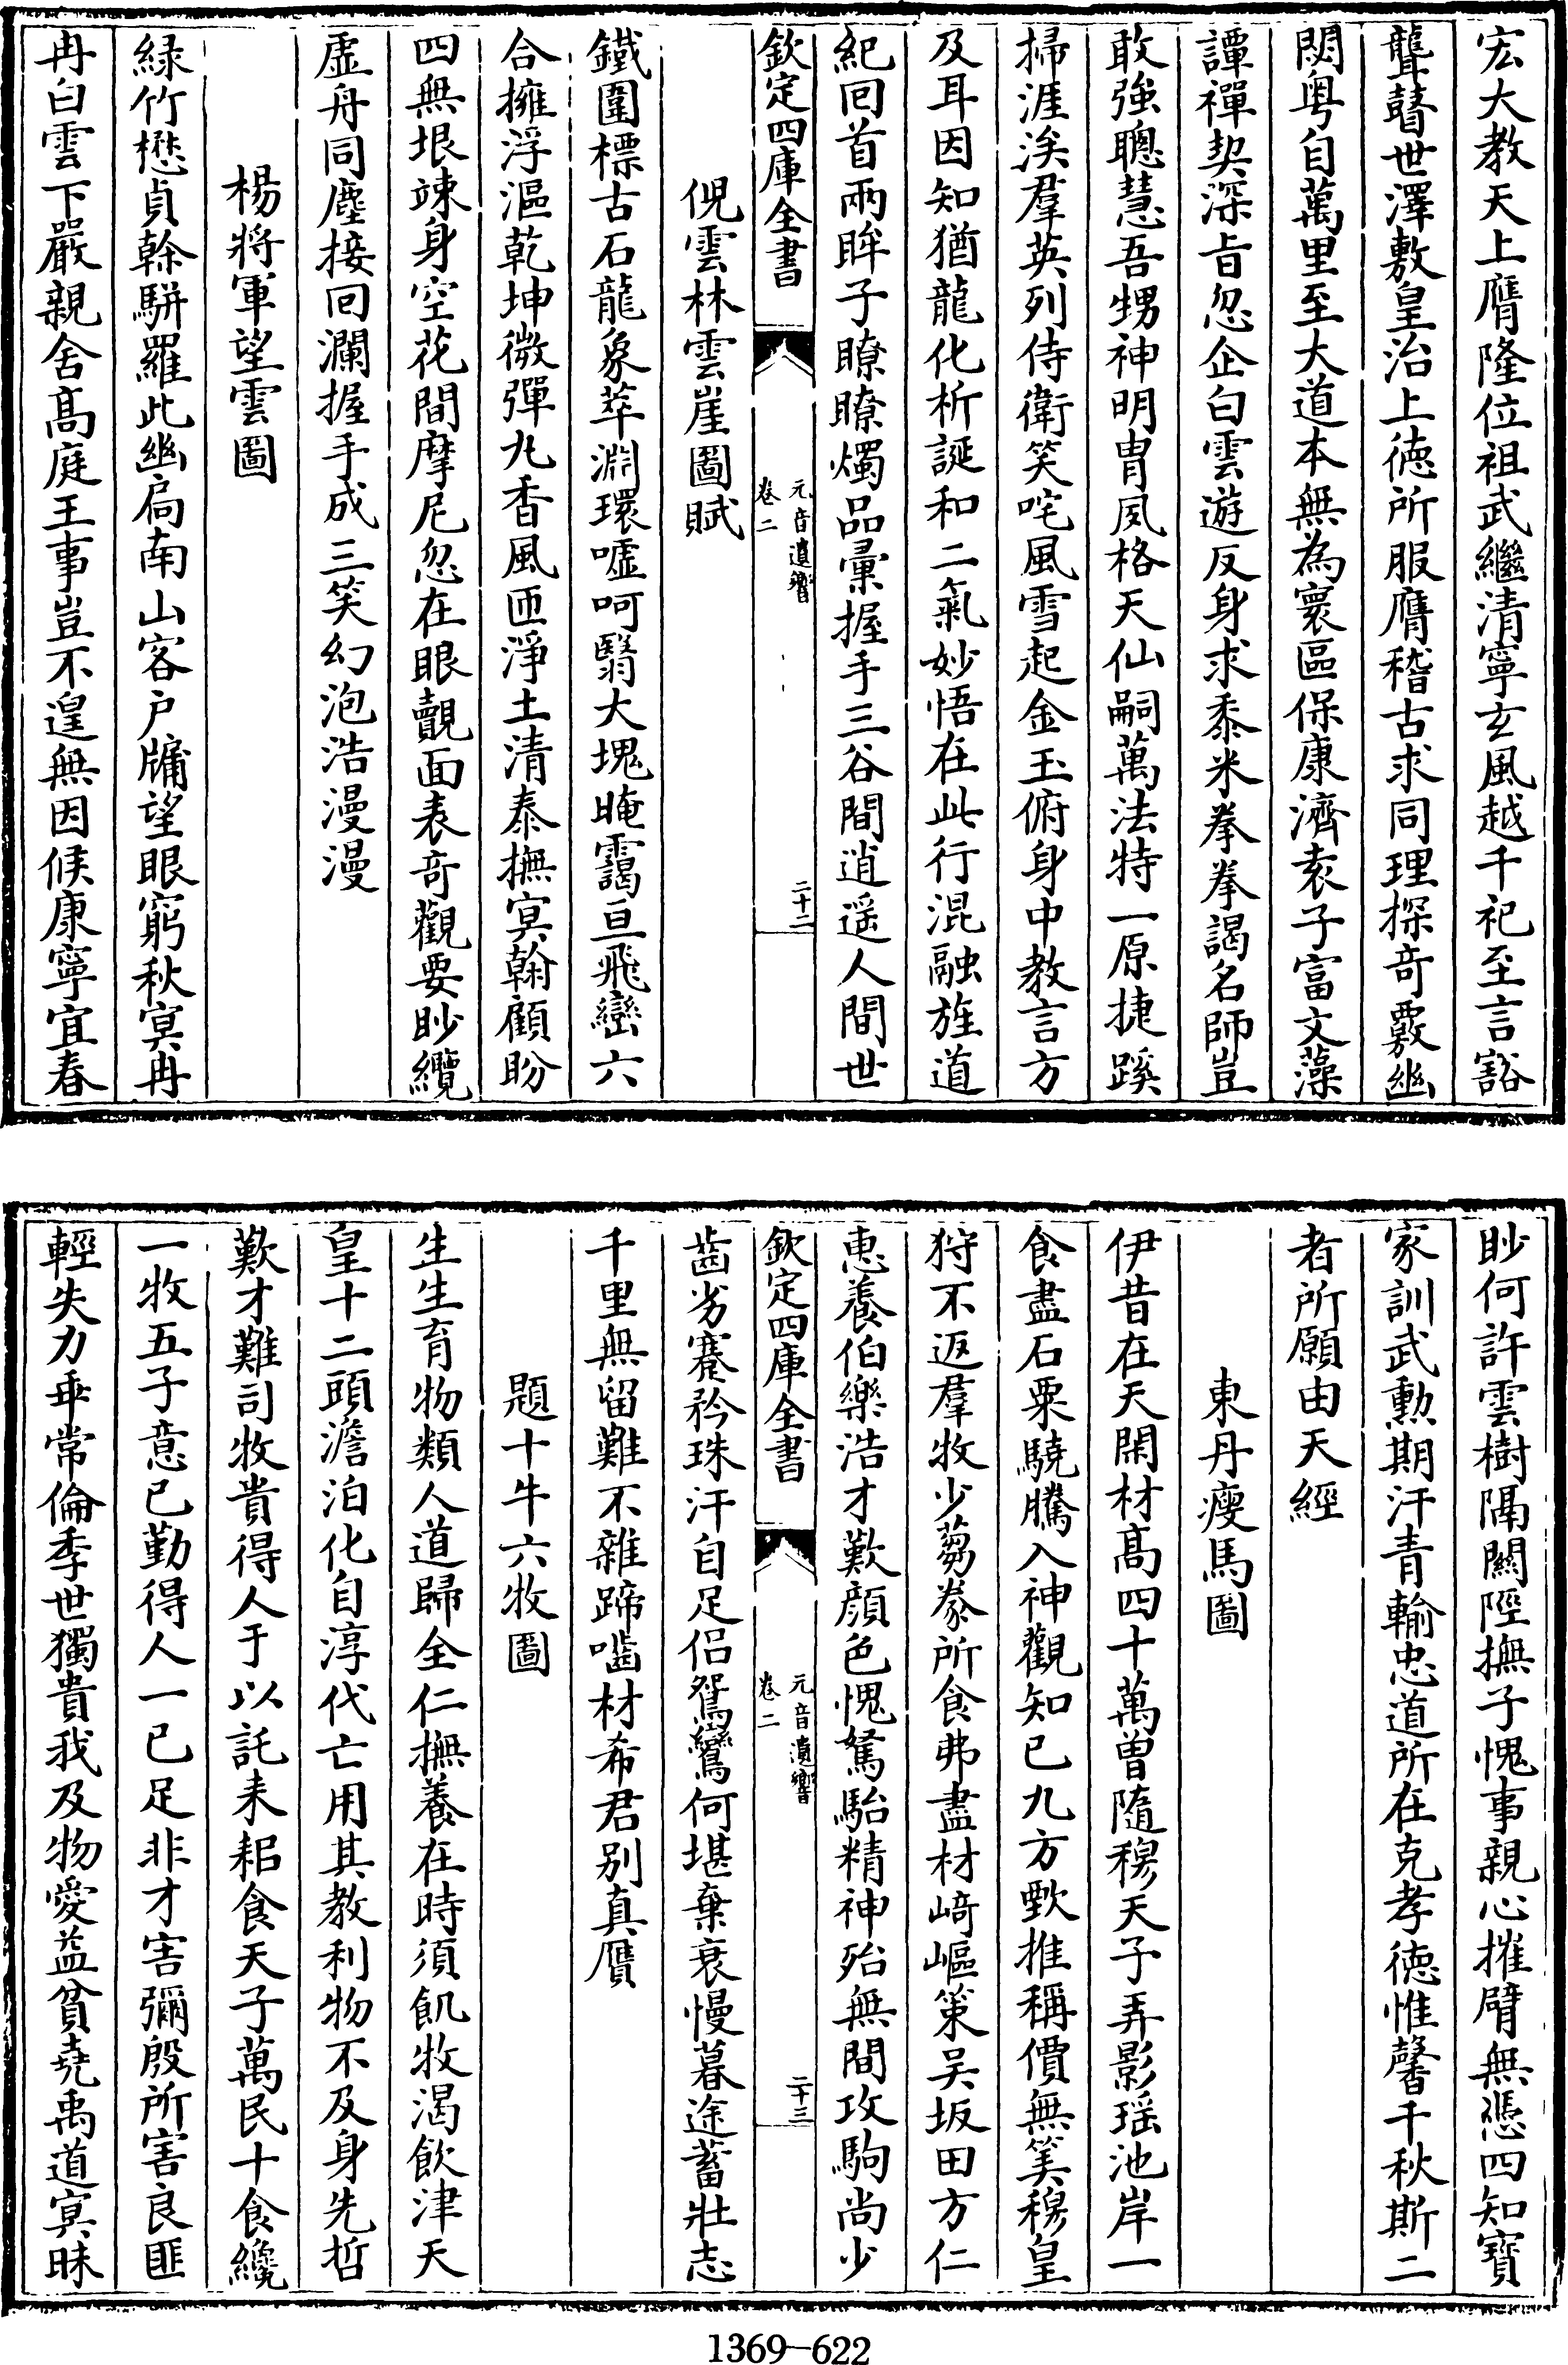 宏大教天上膺隆位祖武繼清寧玄風越千祀至言豁
聾瞽世澤敷皇治上德所服膺稽古求同理探奇覈幽
閟粤自萬里至大道本無為寰區保康濟袁子富文藻
譚禪契深旨忽企白雲遊反身求黍米拳拳謁名師豈
敢強聰慧吾甥神明胄夙格天仙嗣萬法特一原捷蹊
掃涯涘羣英列侍衛笑咤風雪起金玉俯身中教言方
及耳因知猶龍化析誕和二氣妙悟在此行混融旌道
紀回首兩眸子瞭瞭燭品彙握手三谷間逍遥人間世
欽定四庫全書
元音遺響
卷二
二十二
倪雲林雲崖圖賦
鐵圍標古石龍象萃淵環噓呵翳大塊晻靄亘飛巒六
合擁浮漚乾坤微彈丸香風匝淨土清泰撫㝠翰顧盼
四無垠竦身空花間摩尼忽在眼覿面表奇觀要眇纜
虚舟同塵接回瀾握手成三笑幻泡浩漫漫
楊將軍望雲圖
緑竹懋貞幹駢羅此幽扃南山客户牖望眼窮秋㝠冉
冉白雲下嚴親舍髙庭王事豈不遑無因候康寧宜春
眇何許雲樹隔關陘撫子愧事親心摧臂無憑四知寶
家訓武勲期汗青輸忠道所在克孝德惟馨千秋斯二
者所願由天經
東丹瘦馬圖
伊昔在天閑材髙四十萬曽隨穆天子弄影瑶池岸一
食盡石粟驍騰入神觀知已九方歅推稱價無筭穆皇
狩不返羣牧少蒭豢所食弗盡材﨑嶇策吴坂田方仁
惠養伯樂浩才歎顔色愧駑駘精神殆無間攻駒尚少
欽定四庫全書
元音遺響
卷二
二十三
齒劣蹇矜珠汗自足侣鴛鸞何堪棄衰慢暮途蓄壯志
千里無留難不雜蹄嚙材希君别真贋
題十牛六牧圖
生生育物類人道歸全仁撫養在時須飢牧渴飲津天
皇十二頭澹泊化自淳代亡用其教利物不及身先哲
歎才難司牧貴得人于以託耒耜食天子萬民十食纔
一牧五子意已勤得人一已足非才害彌殷所害良匪
輕失力乖常倫季世獨貴我及物愛益貧堯禹道㝠昧
1369—622